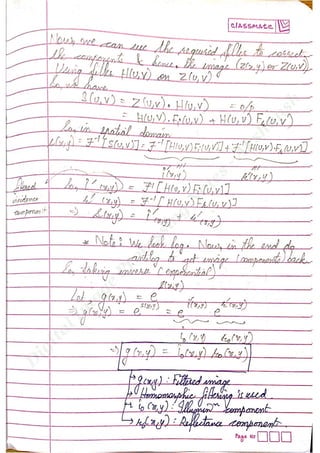 classmate
Now, we can use the required filter to correct
the components & hence the image (z(x,y) or Z(u,v))
Using filter H(u,v) on Z(u,v)
So we have
S(u,v) = Z(u,v) . H(u,v) = o/p
= H(u,v).Fi(u,v) + H(u,v) Fr(u,v)
So, in spatial domain
s(x,y) = F⁻¹[S(u,v)] = F⁻¹[H(u,v)Fi(u,v)] + F⁻¹[H(u,v)Fr(u,v)]
i'(x,y) r'(x,y)
So, i'(x,y) = F⁻¹[H(u,v)Fi(u,v)]
r'(x,y) = F⁻¹[H(u,v)Fr(u,v)]
component
⇒ s(x,y) = i'(x,y) + r'(x,y)
* Note: We took log. Now, in the end do
antilog to get image (components) back
So, taking inverse (exponential)
Let, g(x,y) = e^s(x,y)
⇒ g(x,y) = e^s(x,y) = e^i'(x,y) . e^r'(x,y)
i₀(x,y) r₀(x,y)
⇒ g(x,y) = i₀(x,y) r₀(x,y)
→ g(x,y) : Filtered image
→ Homomorphic filtering is used.
→ i₀(x,y) : Illumin component
→ r₀(x,y) : Reflectance component
Page No